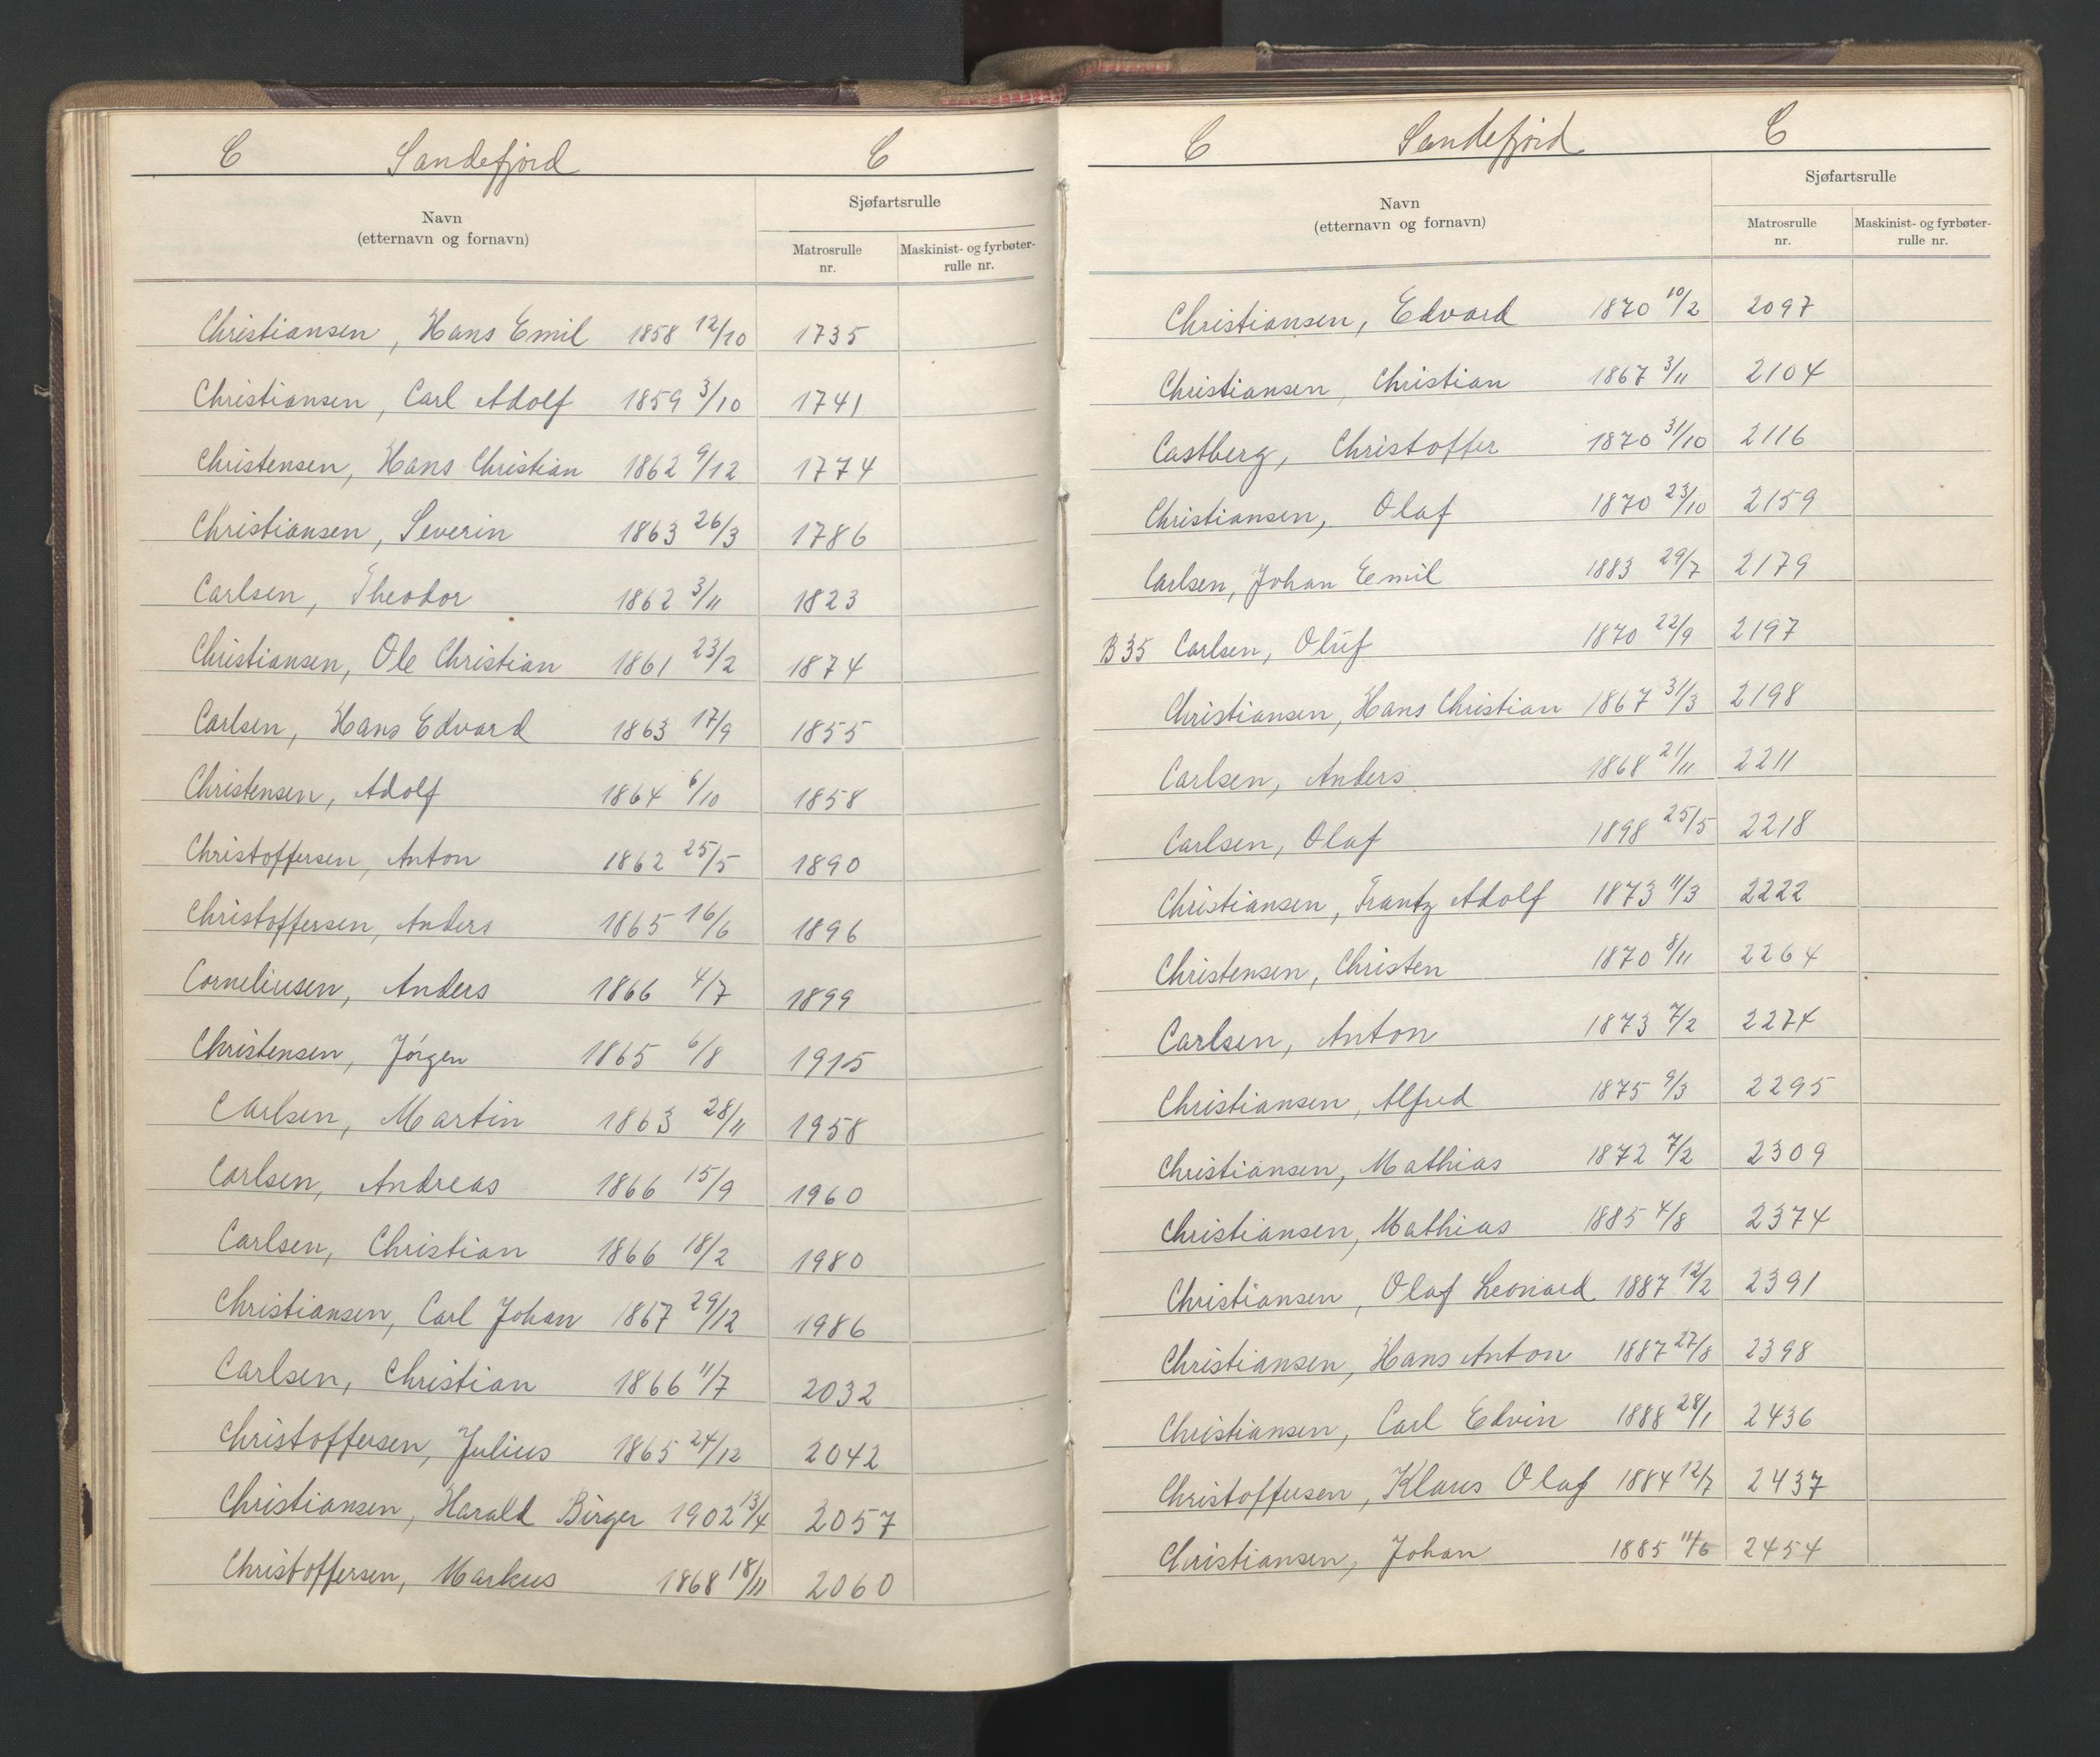 C Sandefjord C
Sjøfartsrulle
Navn
(etternavn og fornavn)
Matrosrulle nr.
Maskinist- og fyrbøter-rulle nr.
Christiansen, Hans Emil 1858 12/10 1735
Christiansen, Carl Adolf 1859 3/10 1741
Christensen, Hans Christian 1862 9/12 1774
Christiansen, Severin 1863 26/3 1786
Carlsen, Theodor 1862 3/11 1823
Christiansen, Ole Christian 1861 23/2 1874
Carlsen, Hans Edvard 1863 17/9 1855
Christensen, Adolf 1864 6/10 1858
Christoffersen, Anton 1862 25/5 1890
Christoffersen, Anders 1865 16/6 1896
Corneliusen, Anders 1866 4/7 1899
Christensen, Jörgen 1865 6/8 1915
Carlsen, Martin 1863 28/11 1958
Carlsen, Andreas 1866 15/9 1960
Carlsen, Christian 1866 18/2 1980
Christiansen, Carl Johan 1867 29/12 1986
Carlsen, Christian 1866 11/7 2032
Christoffersen, Julius 1865 24/12 2042
Christiansen, Harald Birger 1902 13/4 2057
Christoffersen, Markus 1868 18/11 2060
C Sandefjord C
Sjøfartsrulle
Navn
(etternavn og fornavn)
Matrosrulle nr.
Maskinist- og fyrbøter-rulle nr.
Christiansen, Edvard 1870 10/2 2097
Christiansen, Christian 1867 3/11 2104
Castberg, Christoffer 1870 31/10 2116
Christiansen, Olaf 1870 23/10 2159
Carlsen, Johan Emil 1883 29/7 2179
B 35 Carlsen, Oluf 1870 22/9 2197
Christiansen, Hans Christian 1867 31/3 2198
Carlsen, Anders 1868 21/11 2211
Carlsen, Olaf 1898 25/5 2218
Christiansen, Frantz Adolf 1873 11/3 2222
Christensen, Christen 1870 8/11 2264
Carlsen, Anton 1873 7/2 2274
Christiansen, Alfred 1875 9/3 2295
Christiansen, Mathias 1872 7/2 2309
Christiansen, Mathias 1885 4/8 2374
Christiansen, Olaf Leonard 1887 12/2 2391
Christiansen, Hans Anton 1887 27/8 2398
Christiansen, Carl Edvin 1888 28/1 2436
Christoffersen, Klaus Olaf 1884 12/7 2437
Christiansen, Johan 1885 11/6 2454